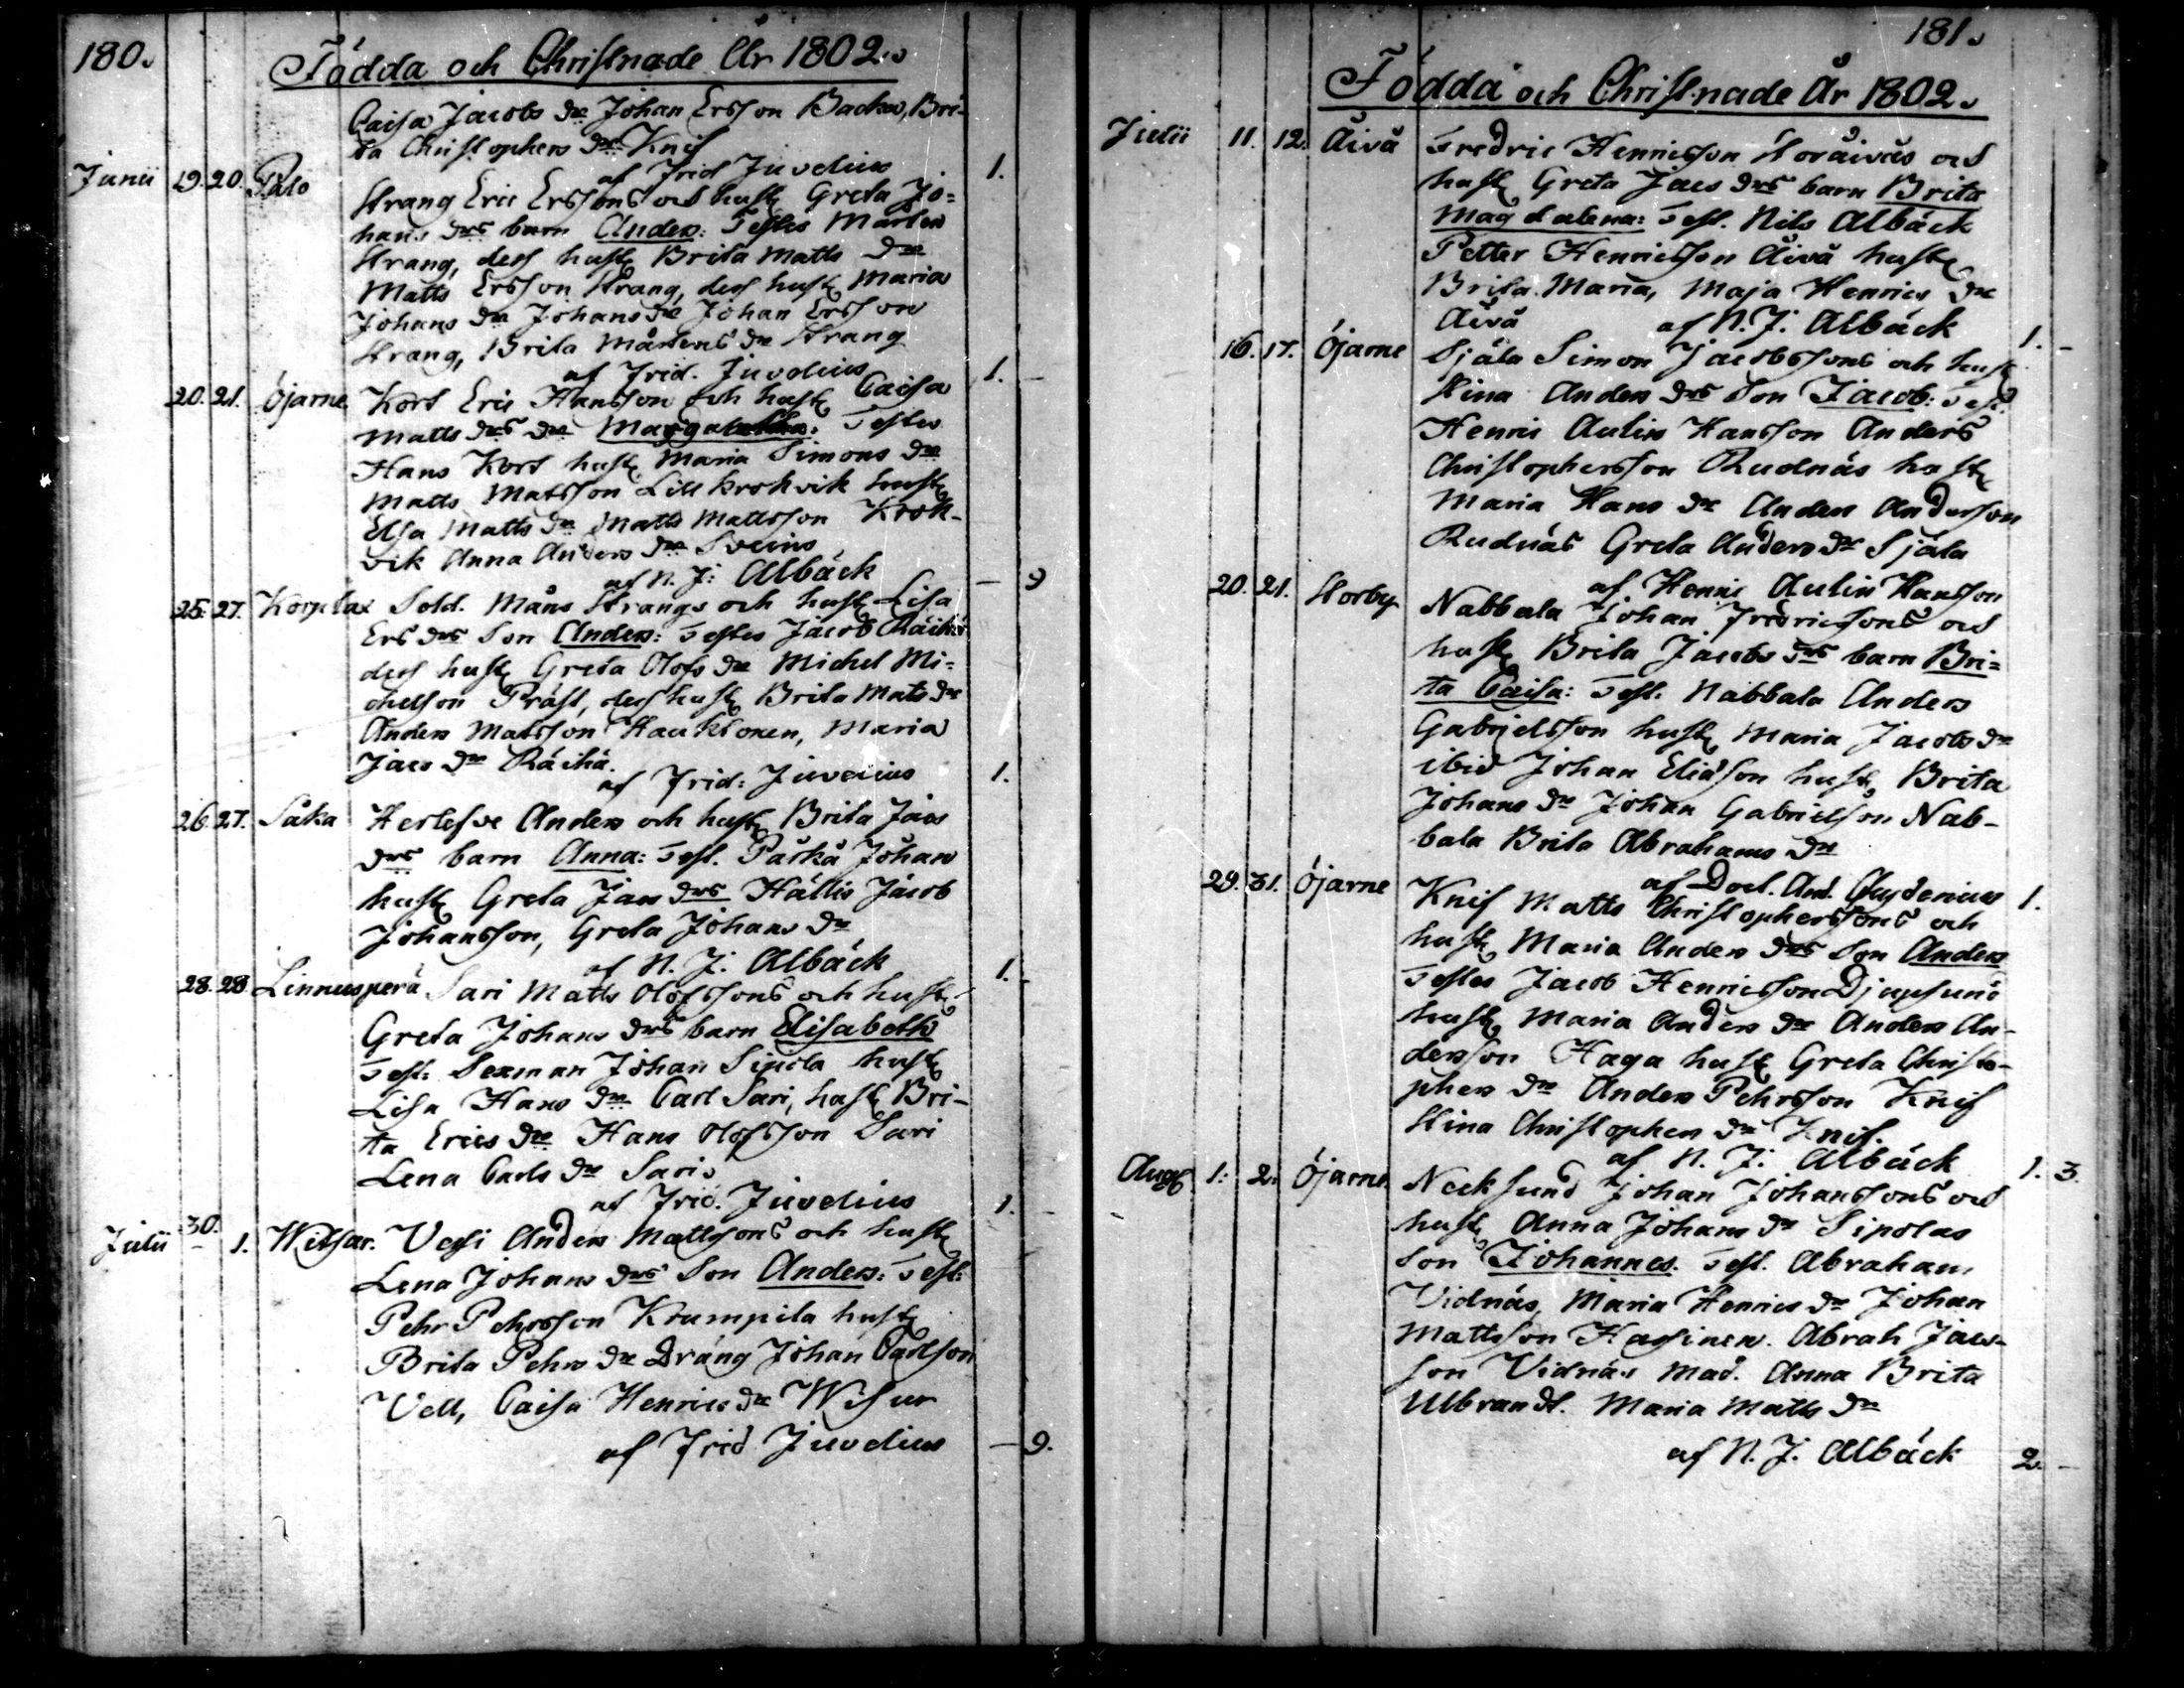 180.
Födda och Christnade År 1802.
Caisa Jacobs dr Johan Ersson Backa, Bri-
ta Christophers dr Knif
af Frid Juvelius 1.
Junii 19. 20. Palo Strang Eric Erssons och hust Greta Jo=
hans drs barn Anders: Testes Mårten
Strang, dess hust Brita Matts dr
Matts Ersson Strang, dess hust Maria
Johans dr Johans dr Johan Ersson
Strang, Brita Mårtens dr Strang
af Frid. Juvelius 1. –
20. 21. Öjarne Kort Eric Hansson och hust Caisa
Matts drs dr Testes
Hans Kort hust Maria Simons dr
Matts Matsson Lill krokvik hust
Elsa Matts dr Matts Mattsson Krok-
vik Anna Anders dr Sveins
af N. J: Albäck – 9
25. 27. Korplax Sold. Måns Strangs och hust Lisa
Ers drs Son Anders: Testes Jacob Räihä
dess hust Greta Olofs dr Michel Mi=
chelson Präst, dess hust Brita Mats dr
Anders Matsson Hauktonen, Maria
Jacs dr Räihä.
af Frid: Juvelius 1.
26. 27. Saka Herlefve Anders och hust Brita Jacs
drs barn Anna: Test. Påskä Johan
hust Greta Jacs drs Hällis Jacob
Johansson, Greta Johans dr
af N. J. Albäck 1.
28. 28. Linnusperä Sari Matts Olofssons och hust
Greta Johans drs barn Elisabeth
Test: Sexman Johan Sipola hust
Lisa Hans dr Carl Sari, hust Bri-
ta Erics dr Hans Olofsson Sari
Lena Carls dr Sari
af Frid. Juvelius 1.
Julii 30. 1. Witsar. Vessi Anders Mattssons och hust
Lena Johans drs Son Anders: Test:
Pehr Pehrsson Krumpila hust
Brita Pehrs dr Dräng Johan Carlsson
Vell, Caisa Henrics dr
af Frid Juvelius – 9.
181.
Födda och Christnade År 1802.
Julii 11. 12. Äivä Fredric Henricsson Storäiväs och
hust Greta Jacs drs barn Brita
Magdalena: Test. Nils Albäck
Petter Henricsson Äivä hust
Brita Maria, Maja Henrics dr
Äivä af N. J: Albäck 1. –
16. 17. Öjarne Själa Simon Jacobssons och hust
Stina Anders drs Son Jacob: Test.
Henric Aulin Hansson Anders
Christophersson Rudnäs hust
Maria Hans dr Anders Andersson
Rudnäs Greta Anders dr Själa
af Henric Aulin Hansson
20. 21. Storby Nabbala Johan Fredricssons och
hust Brita Jacobs drs barn Bri=
ta Caisa: Test: Nabbala Anders
Gabrielsson hust Maria Jacobs dr
ibid Johan Eliasson hust Brita
Johans dr Johan Gabrielsson Nab-
bala Brita Abrahams dr
af Doct. And. Chydenius 1.
29. 31. Öjarne Knif Matts Christopherssons och
hust Maria Anders drs Son Anders
Testes Jacob Henricsson Djupsund
hust Maria Anders dr Anders An-
dersson Haga hust Greta Christo-
phers dr Anders Pehrsson Knif
Stina Christophers dr Knif.
af N. J: Albäck 1. 3.
Aug 1. 2. Öjarne Necksund Johan Johanssons och
hust Anna Johans dr Sipolas
Son Johannes. Test. Abraham
Vidnäs, Maria Henrics dr Johan
Mattsson Hassinen. Abrah Jacs-
son Vidnäs Mad. Anna Brita
Ulbrandt. Maria Matts dr
af N. J. Albäck 2. –